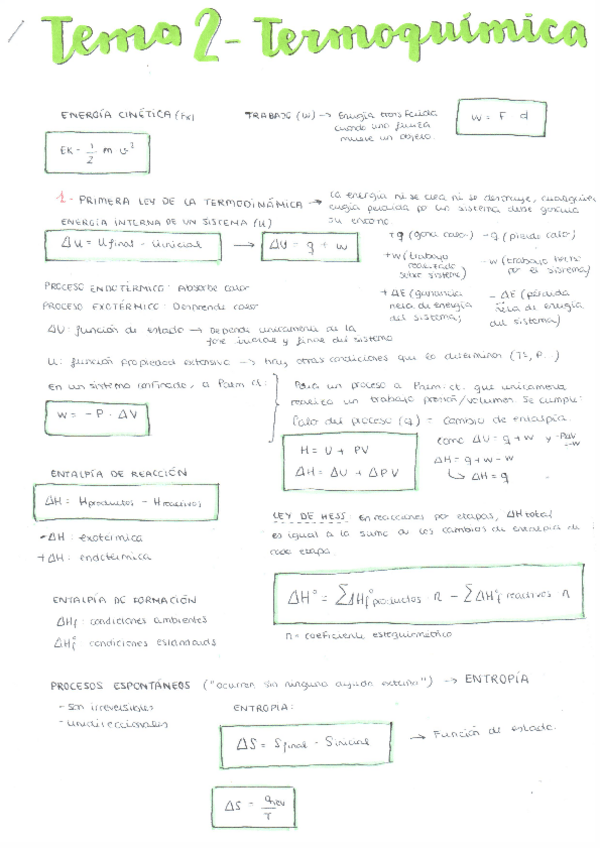 Tema 2 - Termoquímica
ENERGÍA CINÉTICA (Ek)
EK = 1/2 m v²
TRABAJO (W) → Energía transferida
cuando una fuerza
mueve un objeto.
W = F d
1 - PRIMERA LEY DE LA TERMODINÁMICA → La energía ni se crea ni se destruye, cualquier
energía perdida por un sistema debe ganarla
su entorno
ENERGÍA INTERNA DE UN SISTEMA (U)
ΔU = Ufinal - Uinicial → ΔU = q + w
+q (gana calor) -q (pierde calor)
+w (trabajo
realizado
sobre sistema)
-w (trabajo
por el sistema)
+ΔE (ganancia
neta de energía
del sistema)
-ΔE (pérdida
neta de energía
del sistema)
PROCESO ENDOTÉRMICO: Absorbe calor
PROCESO EXOTÉRMICO: Desprende calor
ΔU: función de estado → Depende únicamente de la
fase inicial y final del sistema
U: función propiedad extensiva → hay otras condiciones que lo determinan (Tª, P...)
En un sistema confinado, a Patm ct:
W = -P · ΔV
Para un proceso a Patm. ct. que únicamente
realiza un trabajo presión/volumen. Se cumple:
Calor del proceso (q) = cambio de entalpía.
H = U + PV
ΔH = ΔU + ΔPV
como ΔU = q + w y PΔV
-w
ΔH = q + w - w
↳ ΔH = q
ENTALPÍA DE REACCIÓN
ΔH = Hproductos - Hreactivos
-ΔH: exotérmica
+ΔH: endotérmica
LEY DE HESS: En reacciones por etapas, ΔHtotal
es igual a la suma de los cambios de entalpía de
cada etapa.
ΔH° = ΣΔHf° productos · n - ΣΔHf° reactivos n
n = coeficiente estequiométrico
ENTALPÍA DE FORMACIÓN
ΔHf: condiciones ambientes
ΔHf°: condiciones estándards
PROCESOS ESPONTÁNEOS ("ocurren sin ninguna ayuda externa") → ENTROPÍA
- son irreversibles
- unidireccionales
ENTROPIA:
ΔS = Sfinal - Sinicial → Función de estado.
ΔS = qrev/T